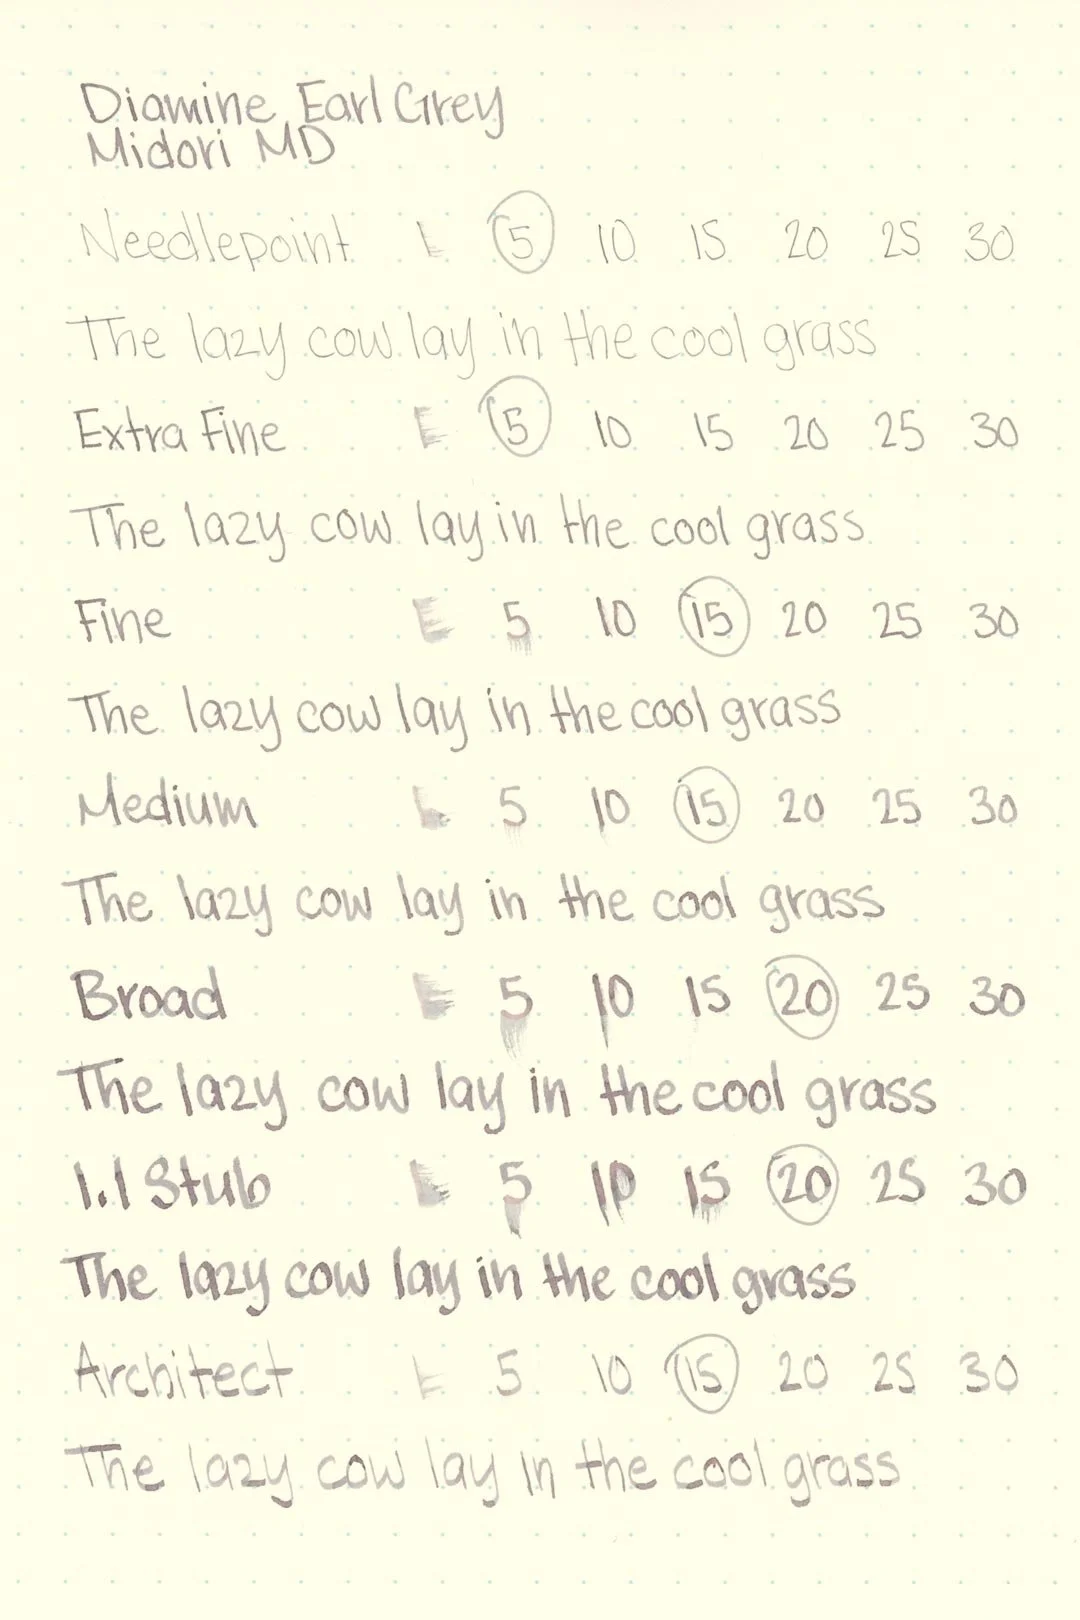 Diamine Earl Grey
Midori MD
Needlepoint L 5 10 15 20 25 30
The lazy cow lay in the cool grass
Extra Fine E 5 10 15 20 25 30
The lazy cow lay in the cool grass
Fine E 5 10 15 20 25 30
The lazy cow lay in the cool grass
Medium L 5 10 15 20 25 30
The lazy cow lay in the cool grass
Broad E 5 10 15 20 25 30
The lazy cow lay in the cool grass
1.1 Stub L 5 10 15 20 25 30
The lazy cow lay in the cool grass
Architect L 5 10 15 20 25 30
The lazy cow lay in the cool grass